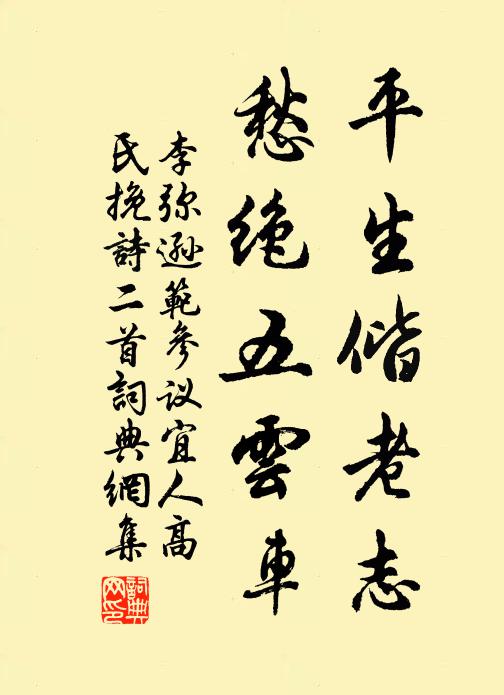 平生偕老志
愁绝五雲車
李弥遜範參议宜人高
氏挽詩二首詞典網集